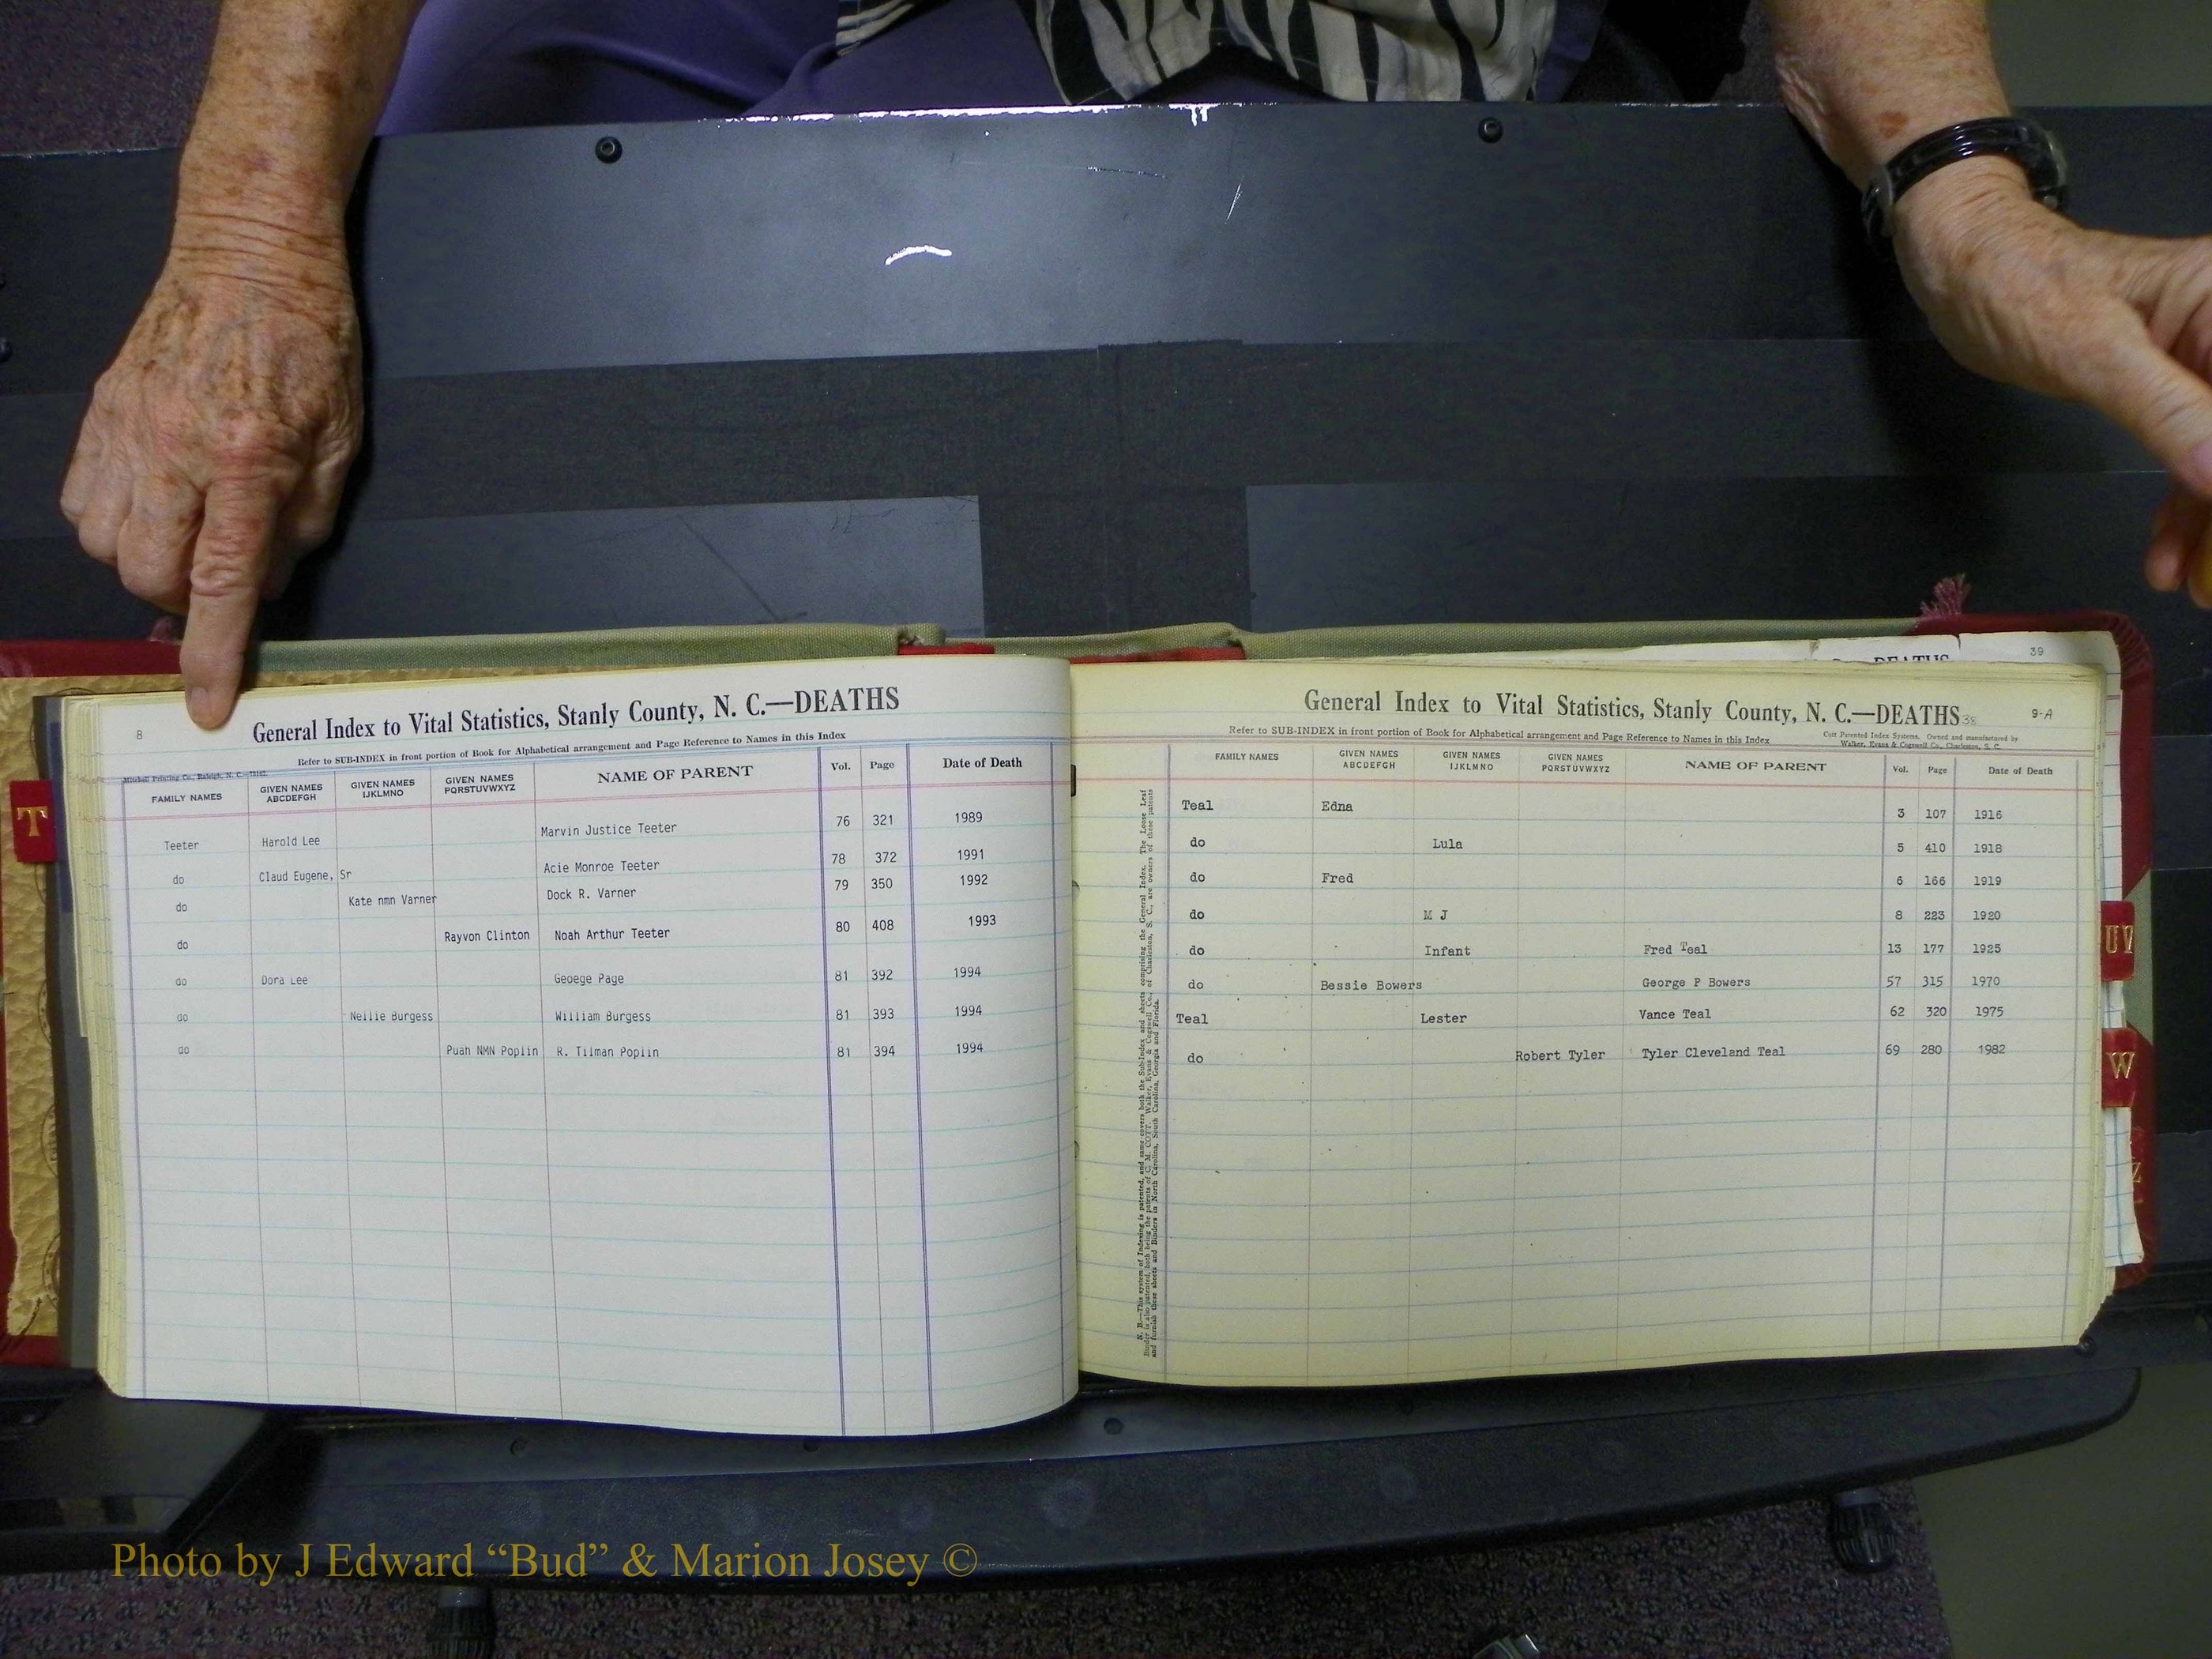 8
General Index to Vital Statistics, Stanly County, N. C.—DEATHS
Refer to SUB-INDEX in front portion of Book for Alphabetical arrangement and Page Reference to Names in this Index
Mitchell Printing Co., Raleigh, N. C.
FAMILY NAMES GIVEN NAMES ABCDEFGH GIVEN NAMES IJKLMNO GIVEN NAMES PQRSTUVWXYZ NAME OF PARENT Vol. Page Date of Death
Teeter Harold Lee Marvin Justice Teeter 76 321 1989
do Claud Eugene, Sr Acie Monroe Teeter 78 372 1991
do Kate nmn Varner Dock R. Varner 79 350 1992
do Rayvon Clinton Noah Arthur Teeter 80 408 1993
do Dora Lee Geoege Page 81 392 1994
do Nellie Burgess William Burgess 81 393 1994
do Puah NMN Poplin R. Tilman Poplin 81 394 1994
T
DEATHS
39
General Index to Vital Statistics, Stanly County, N. C.—DEATHS 38 9-A
Refer to SUB-INDEX in front portion of Book for Alphabetical arrangement and Page Reference to Names in this Index
Cott Patented Index Systems, Owned and manufactured by
Walker, Evans & Cogswell Co., Charleston, S. C.
FAMILY NAMES GIVEN NAMES ABCDEFGH GIVEN NAMES IJKLMNO GIVEN NAMES PQRSTUVWXYZ NAME OF PARENT Vol. Page Date of Death
Teal Edna 3 107 1916
do Lula 5 410 1918
do Fred 6 166 1919
do M J 8 223 1920
do Infant Fred Teal 13 177 1925
do Bessie Bowers George P Bowers 57 315 1970
Teal Lester Vance Teal 62 320 1975
do Robert Tyler Tyler Cleveland Teal 69 280 1982
N. B.—This system of Indexing is patented, and same covers both the Sub-Index and sheets comprising the General Index. The Loose Leaf
Binder is also patented, both being the patents of C. M. COTT. Walker, Evans & Cogswell Co., of Charleston, S. C., are owners of these patents
and furnish these sheets and Binders in North Carolina, South Carolina, Georgia and Florida.
UV
W
Z
Photo by J Edward “Bud” & Marion Josey ©